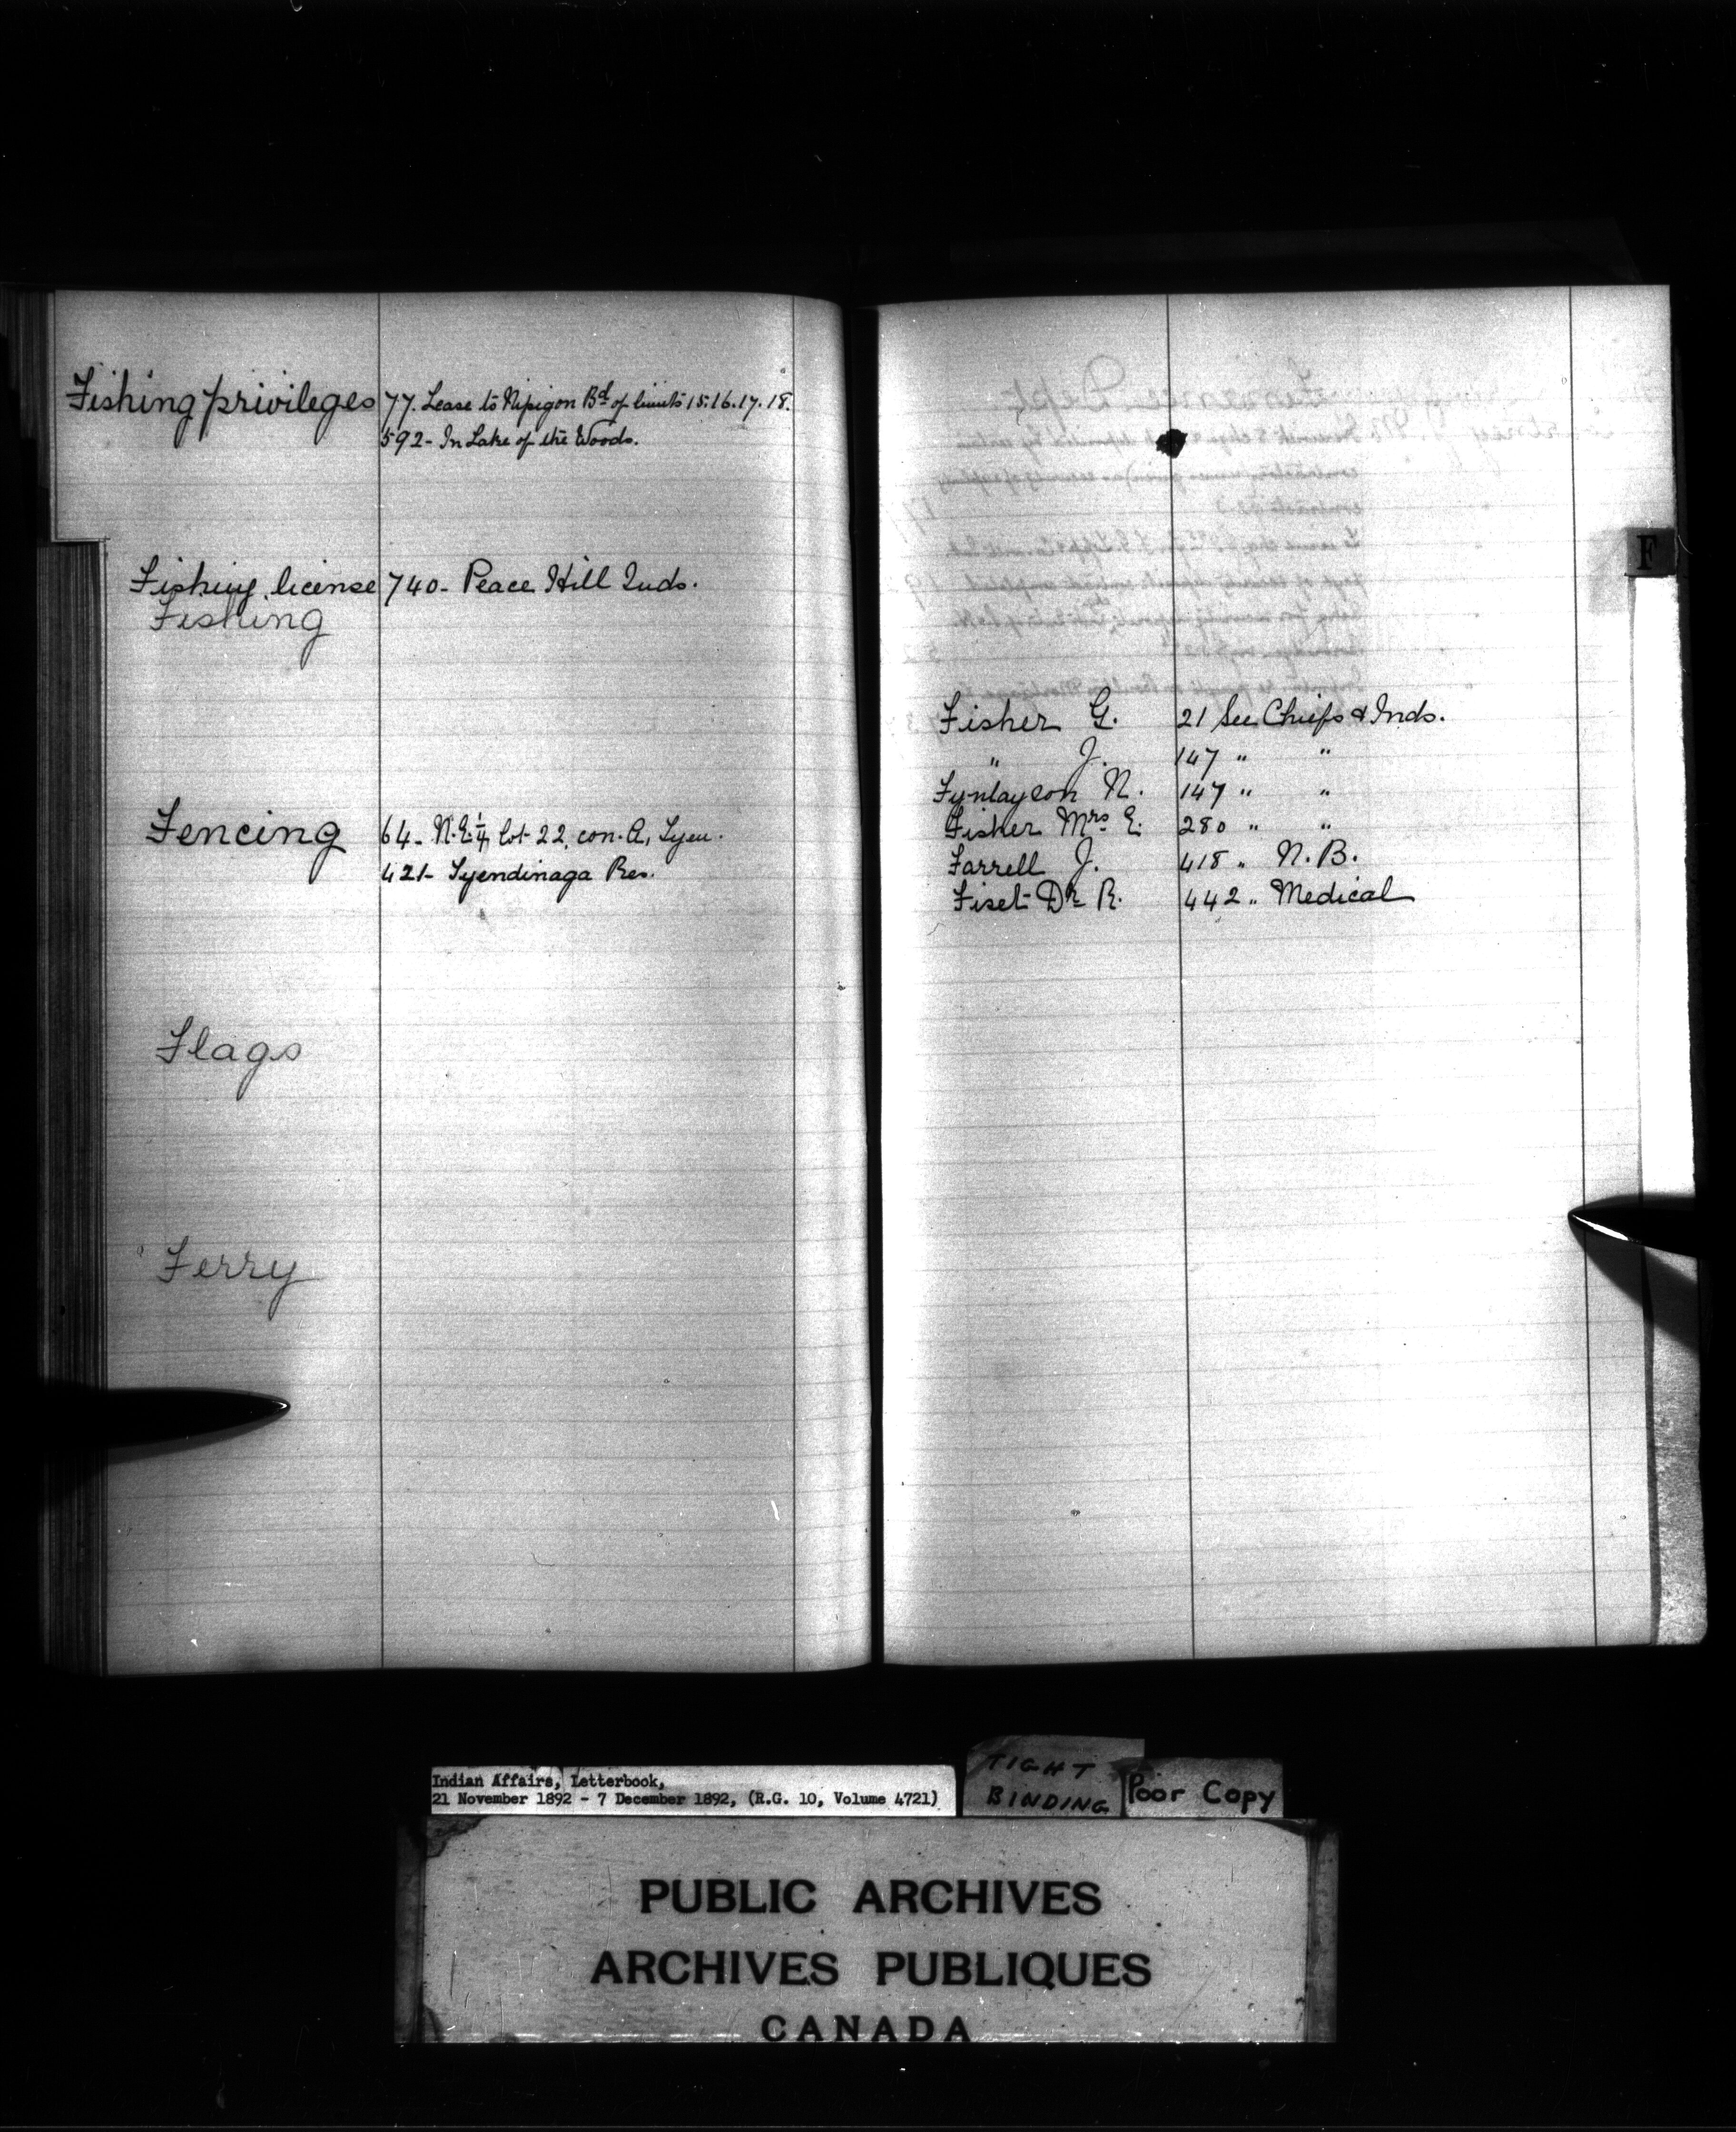 Fishing privileges 77. Lease to Nipigon Bd of limits 15.16.17.18.
592- In Lake of the Woods.
Fishing license 740- Peace Hill Inds.
Fishing
Fencing 64- N.E. 1/4 lot 22, con. A, Tyen.
421- Tyendinaga Res.
Flags
Ferry
F
Fisher G. 21 See Chiefs & Inds.
" J. 147 " "
Fynlayson N. 147 " "
Fisher Mrs E. 280 " "
Farrell J. 418 " N.B.
Fiset Dr R. 442 " Medical
Indian Affairs, Letterbook,
21 November 1892 - 7 December 1892, (R.G. 10, Volume 4721)
TIGHT
BINDING
Poor Copy
PUBLIC ARCHIVES
ARCHIVES PUBLIQUES
CANADA